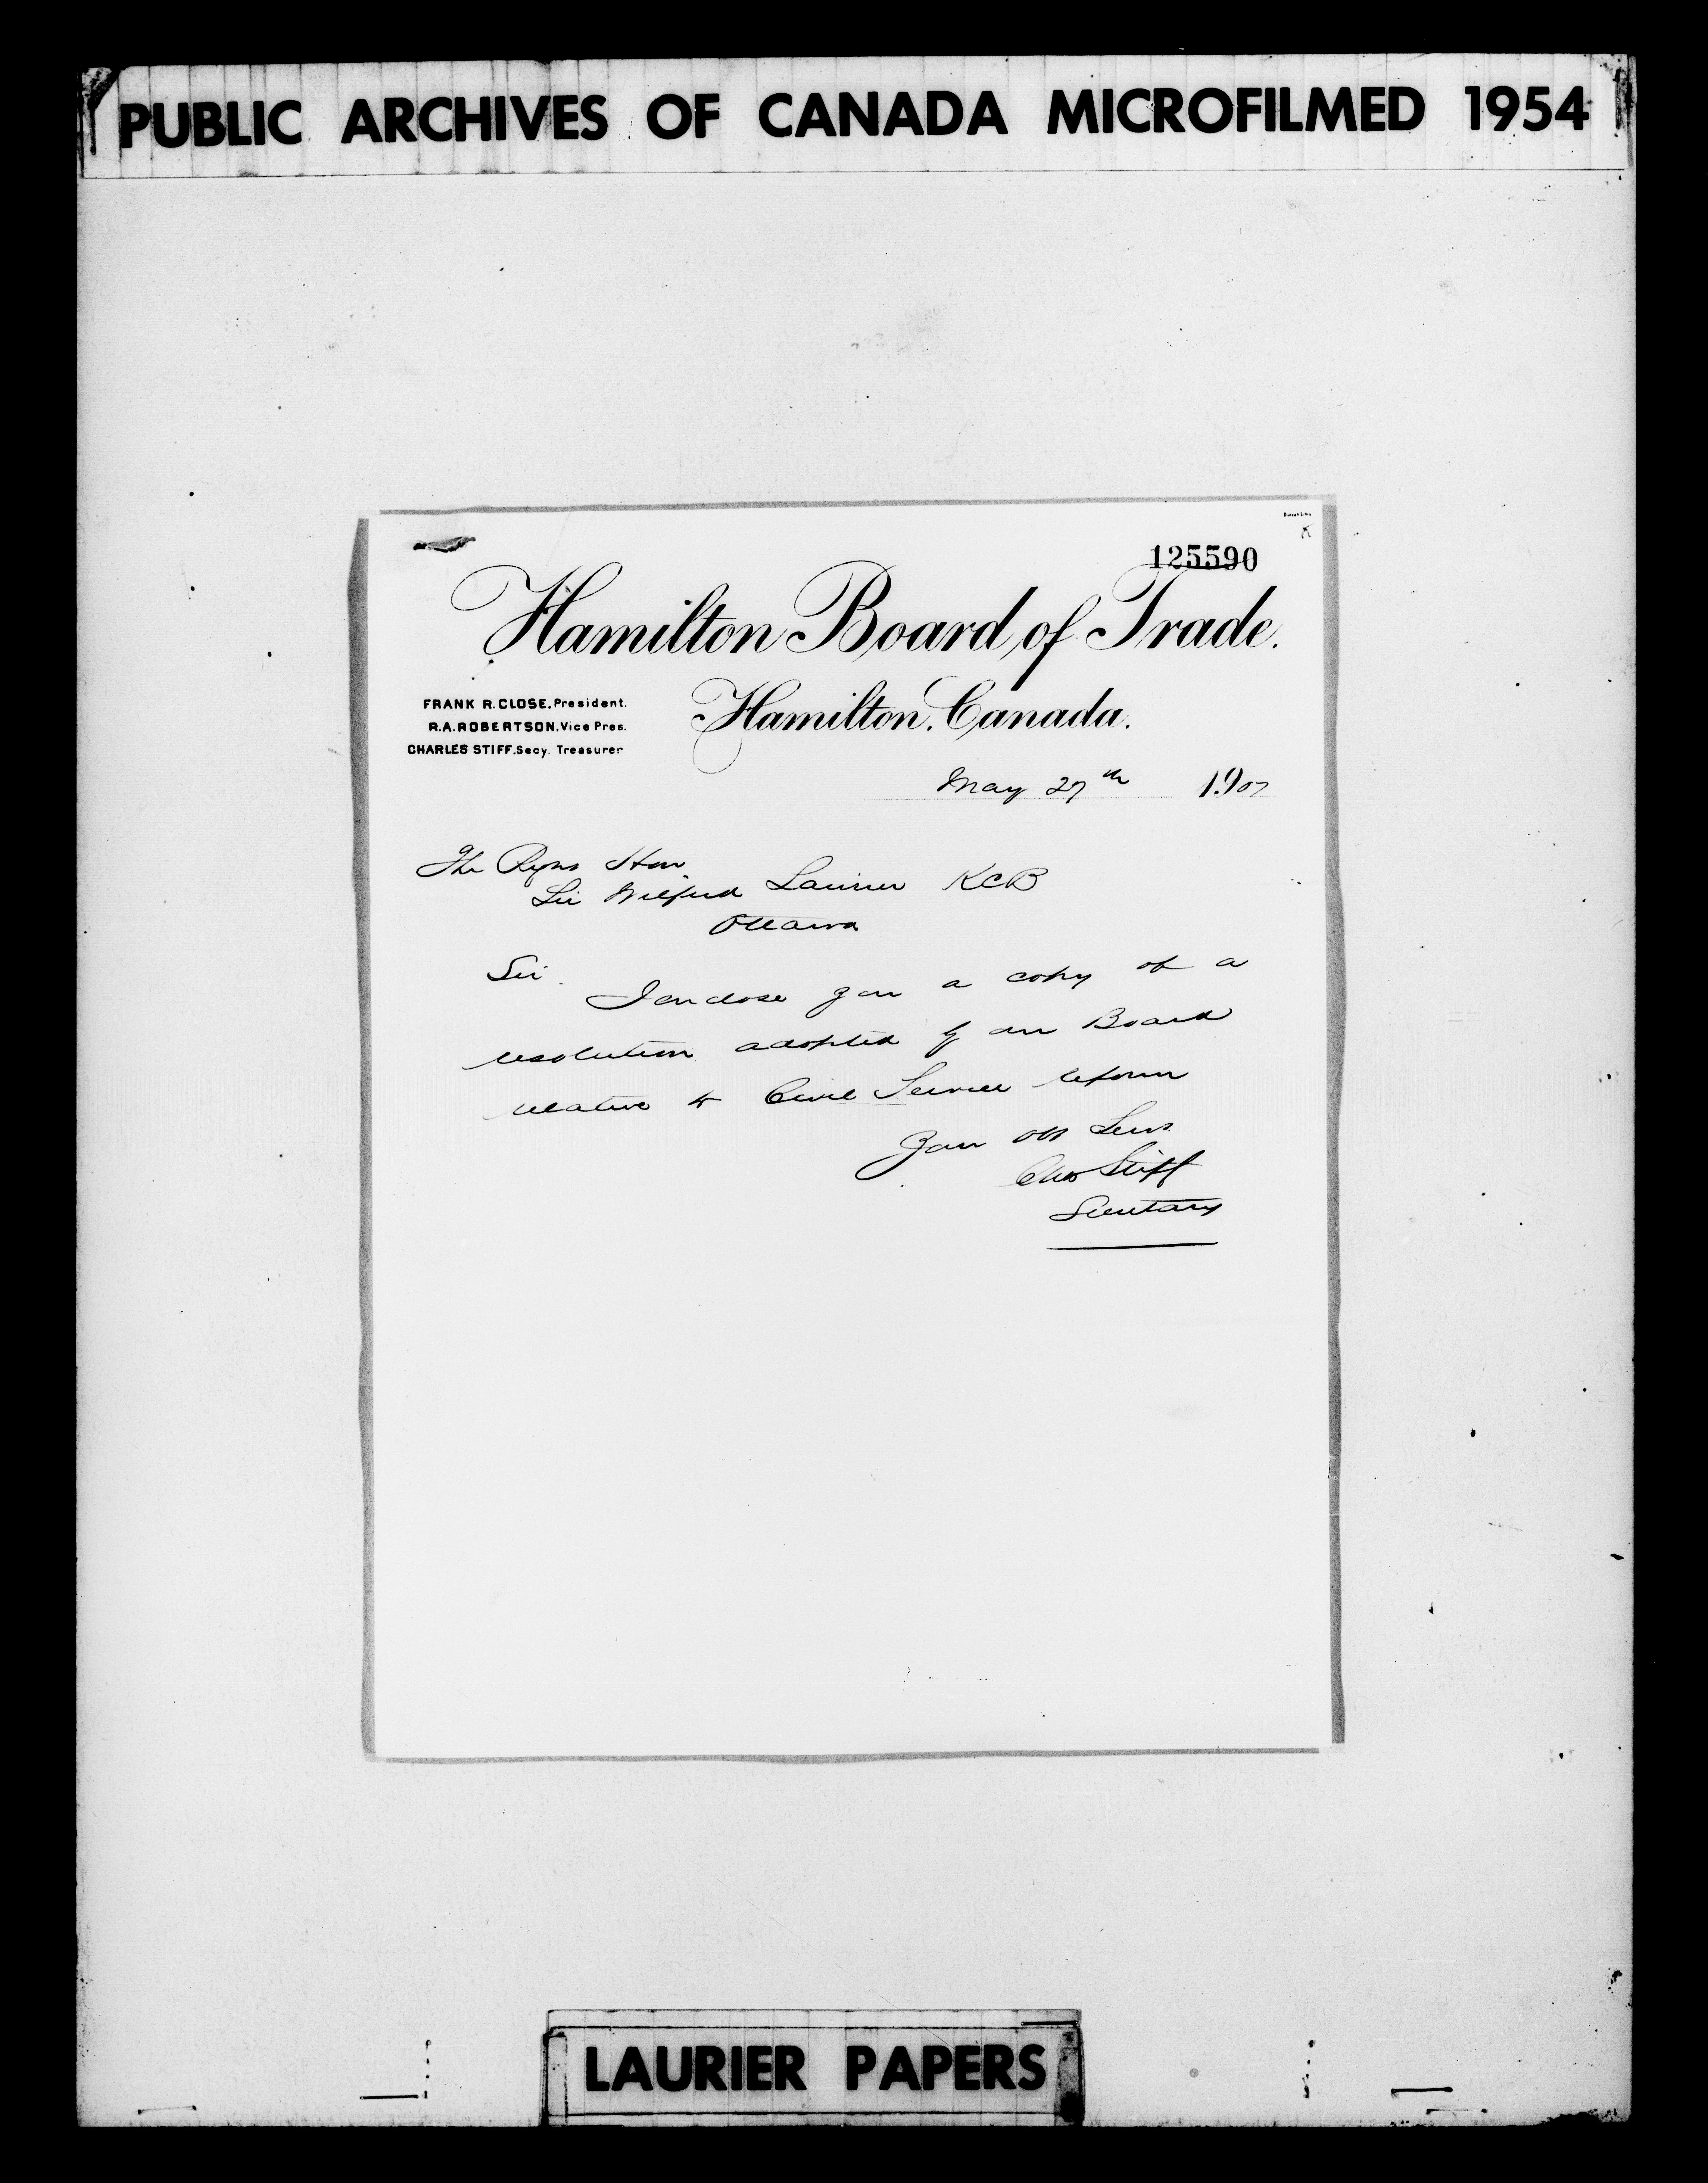 PUBLIC ARCHIVES OF CANADA MICROFILMED 1954
125590
Hamilton Board of Trade.
FRANK R. CLOSE, President.
Hamilton, Canada.
R. A. ROBERTSON, Vice Pres.
CHARLES STIFF, Secy. Treasurer
May 27th 1907
The Right Hon
Sir Wilfrid Laurier KCB
Ottawa
Sir.
I enclose you a copy of a
resolution adopted by our Board
relative to Civil Service reform
Your Obt Servt
Chas Stiff
Secretary
LAURIER PAPERS